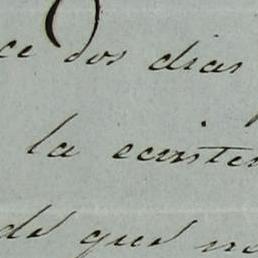 ce dos dias
la ecciste
de que no